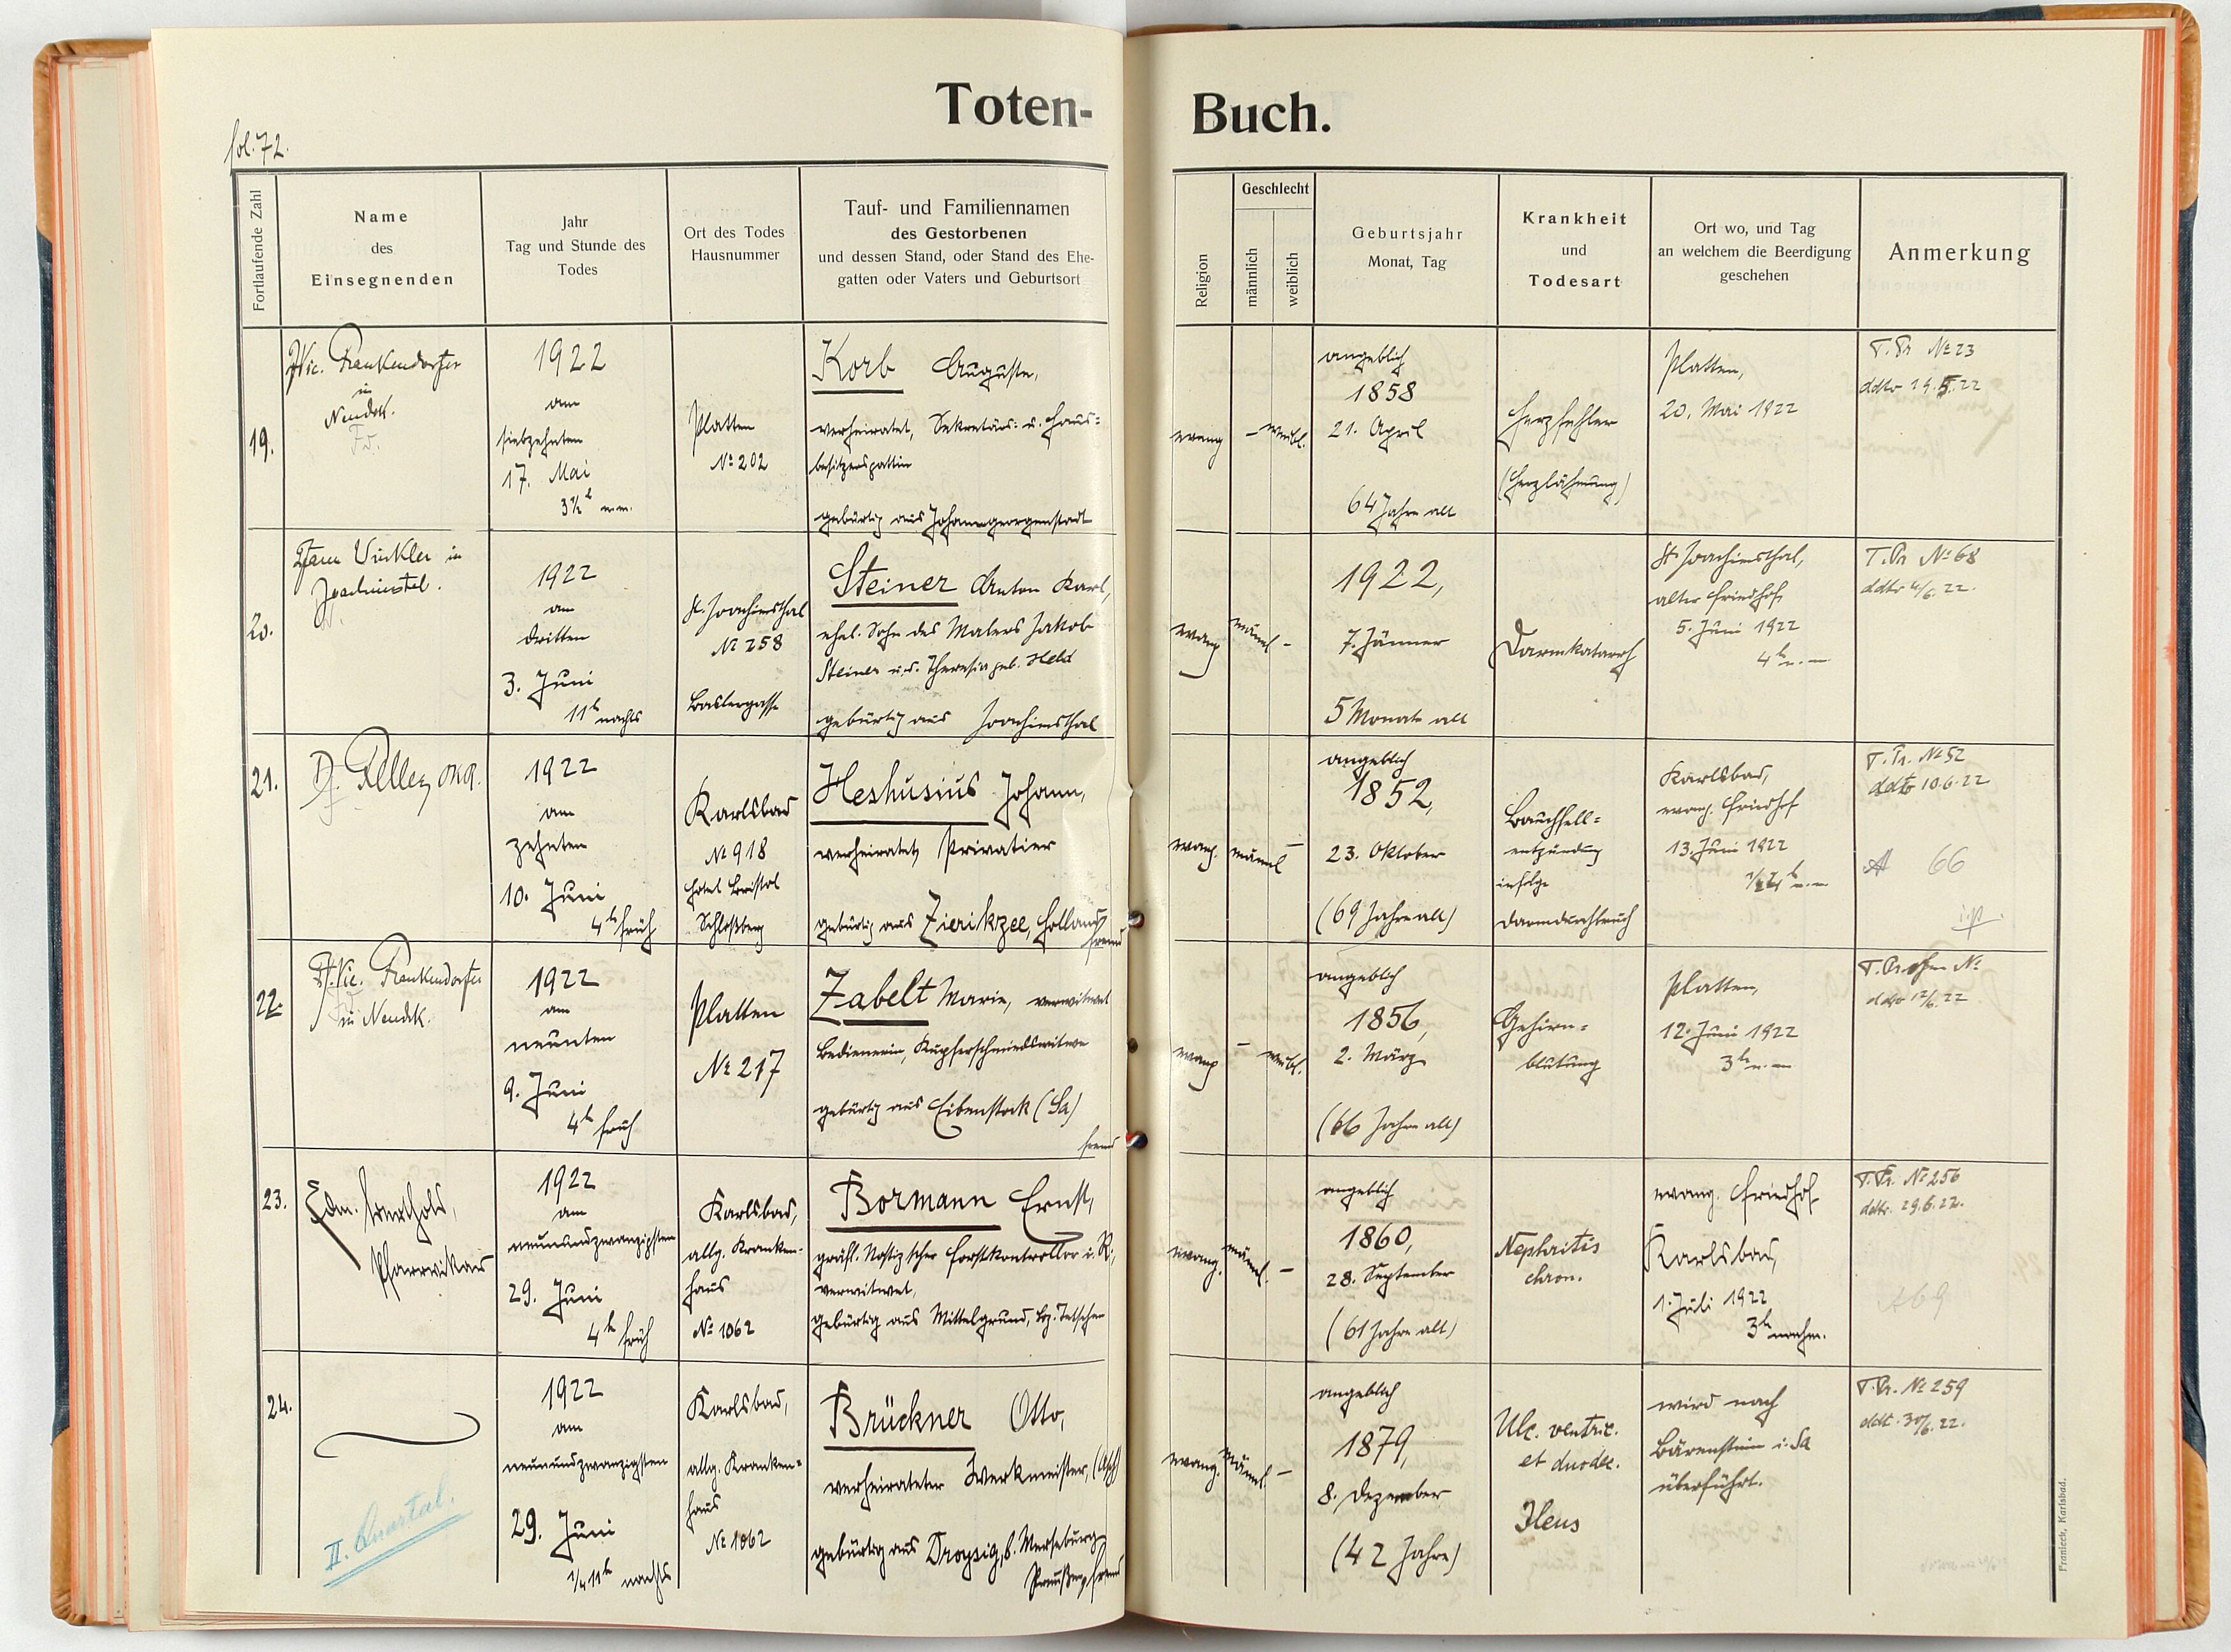 Toten-
Buch.
fol. 72.
Fortlaufende Zahl
Name
des
Einsegnenden
Jahr
Tag und Stunde des
Todes
Ort des Todes
Hausnummer
Tauf- und Familiennamen
des Gestorbenen
und dessen Stand, oder Stand des Ehe-
gatten oder Vaters und Geburtsort
Religion
Geschlecht
männlich
weiblich
Geburtsjahr
Monat, Tag
Krankheit
und
Todesart
Ort wo, und Tag
an welchem die Beerdigung
geschehen
Anmerkung
19.
Frankendorfer
in
Neudek.
1922
am
siebzehnten
17. Mai
3½ h
Platten
№ 202
Korb Auguste,
verheiratet, Sekretärs- u. Haus-
besitzersgattin
gebürtig aus Johanngeorgenstadt
evang
– weibl.
angeblich
1858
21. April
64 Jahre alt
Herzfehler
(Herzlähmung)
Platten,
20. Mai 1922
T. Pr № 23
ddto 19.5.22
20.
Winkler in
1922
am
dritten
3. Juni
11h nachts
St. Joachimsthal
№ 258
Baslergasse
Steiner Anton Karl,
ehel. Sohn des Malers Jakob
Steiner u. d. Theresia geb. Held
gebürtig aus Joachimsthal
evang
männl –
1922,
7. Jänner
5 Monate alt
Darmkatarrh
St. Joachimsthal,
alter Friedhof
5. Juni 1922
4h n. m
T. Pr № 68
ddto 4/6. 22.
21.
1922
am
zehnten
10. Juni
4h früh
Karlsbad
№ 918
Hotel Bristol
Schloßberg
Heshusius Johann,
verheiratet, Privatier
gebürtig aus Zierikzee, Holland
fremd
evang.
männl –
angeblich
1852,
23. Oktober
(69 Jahre alt)
Bauchfell-
entzündung
infolge
Darmdurchbruch
Karlsbad,
evang. Friedhof
13. Juni 1922
T. Pr. № 52
ddto 10.6.22
A 66
22
Frankendorfer
in Neudek.
1922
am
neunten
9. Juni
4h früh
Platten
№ 217
Zabelt Marie, verwitwet
Bedienerin, Kupferschmiedswitwe
gebürtig aus Eibenstock (Sa)
fremd
evang
– weibl.
angeblich
1856,
2. März
(66 Jahre alt)
Gehirn-
blutung
Platten,
12. Juni 1922
3h n. m
T. Pr ohne №
ddto 12/6. 22
23.
Edm. Berthold,
Pfarrvikar
1922
am
neunundzwanzigsten
29. Juni
4h früh
Karlsbad,
allg. Kranken-
haus
№ 1062
Bormann Ernst,
gräfl. Nostizscher Forstkontrollor i. R.,
verwitwet,
gebürtig aus Mittelgrund, Bz. Tetschen
evang.
männl. –
angeblich
1860,
28. September
(61 Jahre alt)
Nephritis
chron.
evang. Friedhof
Karlsbad,
1. Juli 1922
3h nachm.
T. Pr. № 256
ddto. 29.6.22.
A 69
24.
1922
am
neunundzwanzigsten
29. Juni
¼ 11h nachts
Karlsbad,
allg. Kranken-
haus
№ 1062
Brückner Otto,
verheirateter Werkmeister, (Asch)
gebürtig aus Droysig, b. Merseburg
Preußen, fremd
evang.
männl. –
angeblich
1879,
8. Dezember
(42 Jahre)
Ulc. ventric.
et duoden.
Ileus
wird nach
Bärenstein i. Sa
überführt.
T. Pr. № 259
ddt. 30/6. 22.
II. Quartal.
Franieck, Karlsbad.